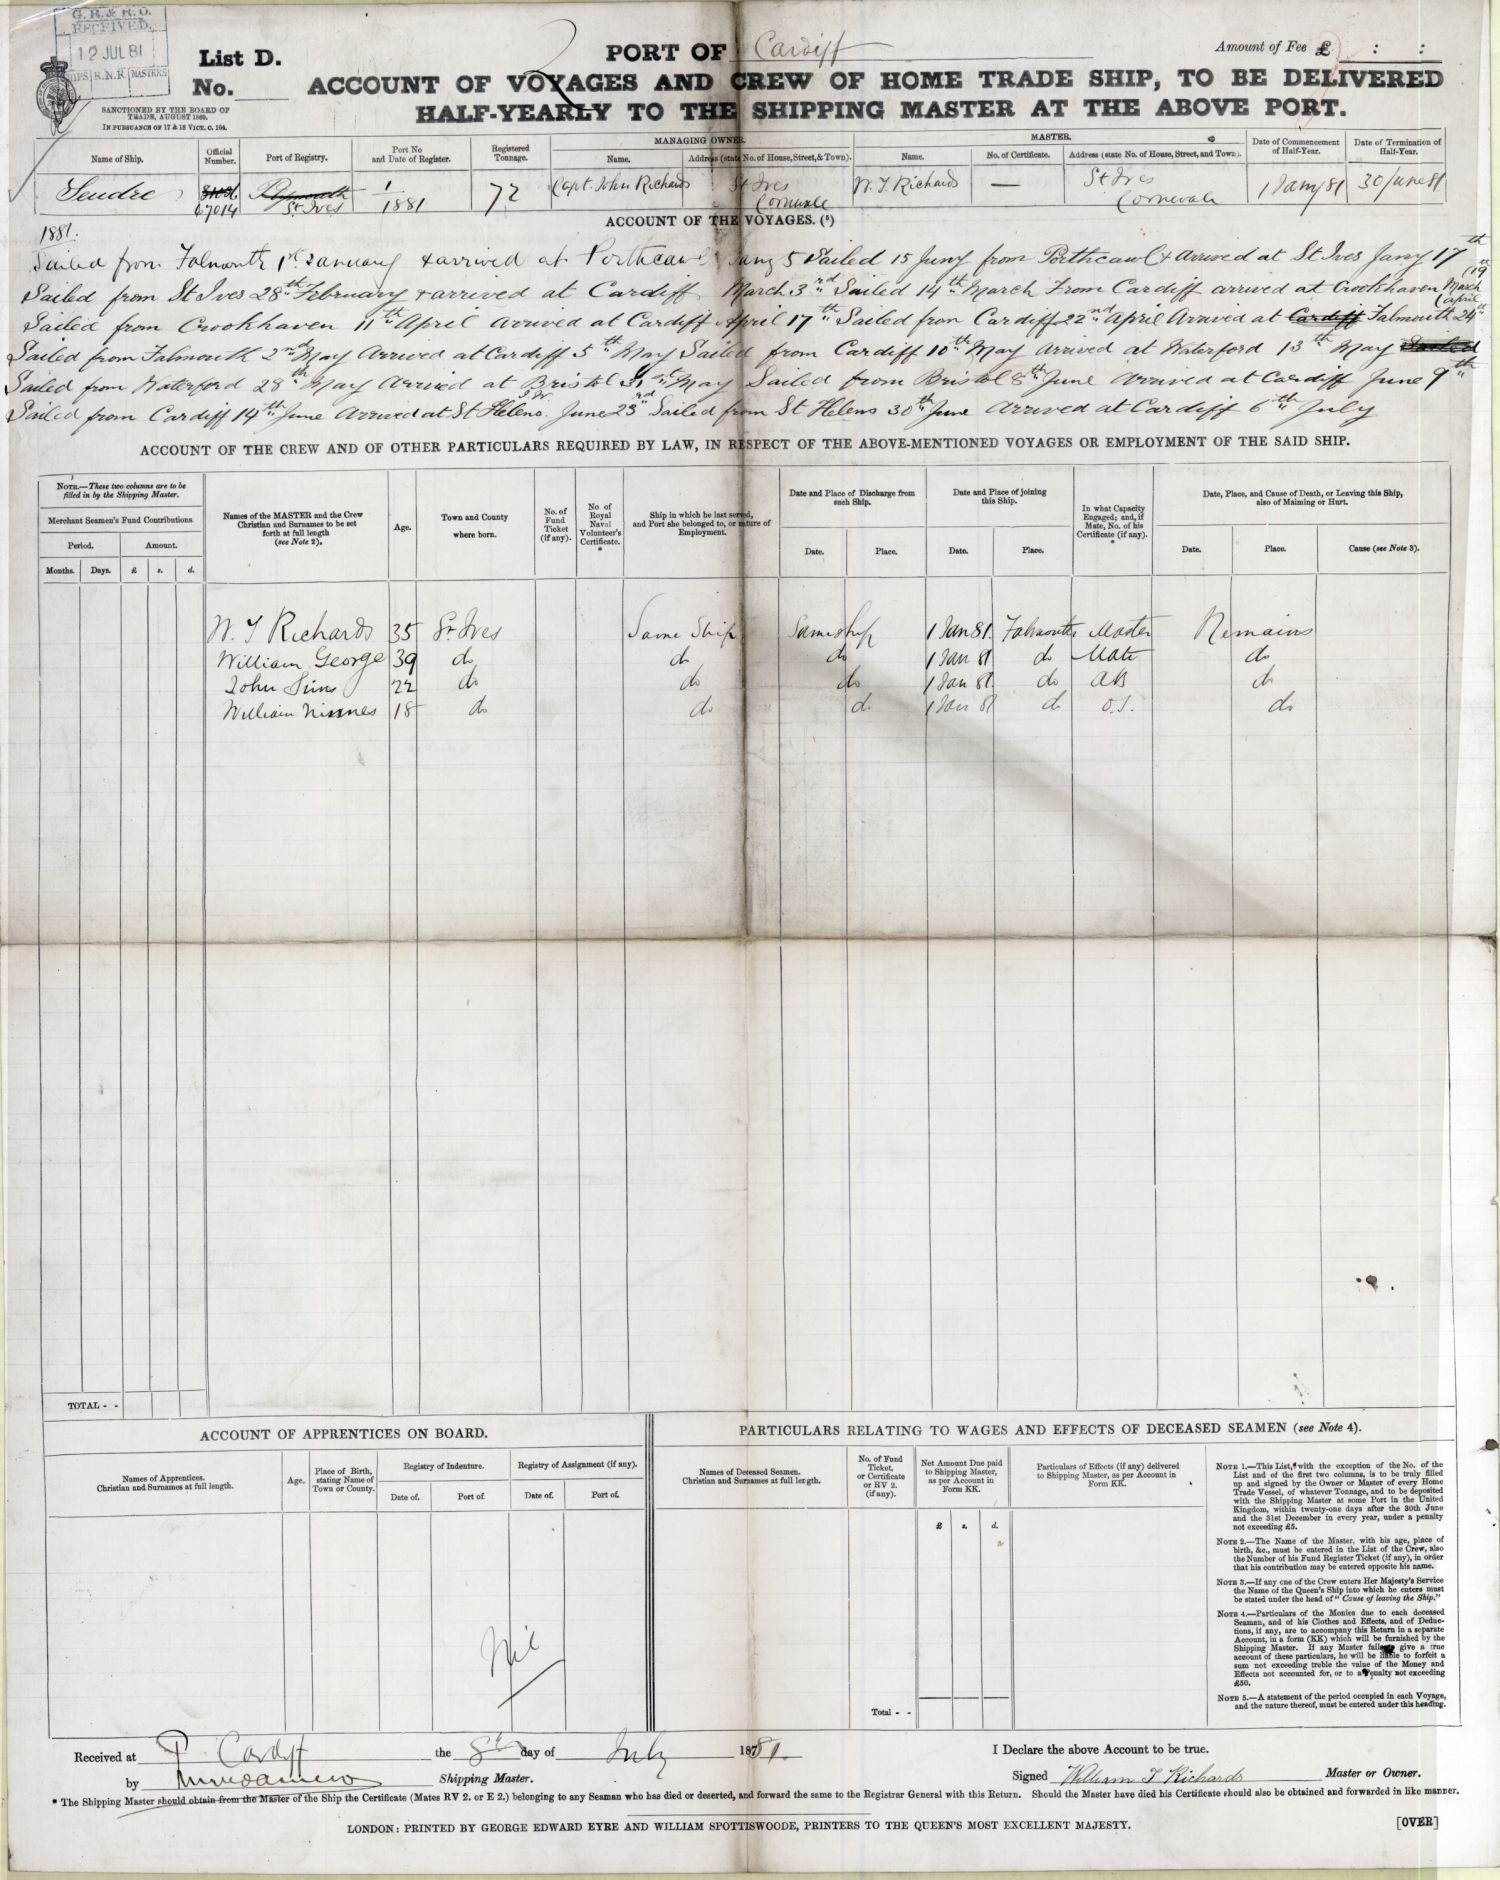 G.R.&R.O.
RECEIVED.
12 JUL 81
R.N.R MASTERS
List D.
No.
SANCTIONED BY THE BOARD OF
TRADE, AUGUST 1860.
IN PURSUANCE OF 17 & 18 VICT. C. 104.
PORT OF Cardiff
Amount of Fee £ : :
ACCOUNT OF VOYAGES AND CREW OF HOME TRADE SHIP, TO BE DELIVERED
HALF-YEARLY TO THE SHIPPING MASTER AT THE ABOVE PORT.
Name of Ship.
Official Number.
Port of Registry.
Port No and Date of Register.
Registered Tonnage.
MANAGING OWNER.
Name.
Address (state No. of House, Street, & Town).
MASTER.
Name.
No. of Certificate.
Address (state No. of House, Street, and Town).
Date of Commencement of Half-Year.
Date of Termination of Half-Year.
67014
Plymouth
St Ives
1
1881
72
Capt John Richards
St Ives
Cornwale
W. T. Richards
—
St Ives
Cornwale
1 Jany 81
30 June 81
ACCOUNT OF THE VOYAGES. (5)
1881.
Sailed from Falmouth 1st January & arrived at Porthcawl Jany 5 Sailed 15 Juny from Porthcawl & Arrived at St Ives Jany 17th
Sailed from St Ives 28th February & arrived at Cardiff March 3rd Sailed 14th March From Cardiff arrived at Crookhaven March 19
Sailed from Crookhaven 11th April arrived at Cardiff April 17th Sailed from Cardiff 22nd April Arrived at Cardiff Falmouth 24th april
Sailed from Falmouth 2nd May Arrived at Cardiff 5th May Sailed from Cardiff 10th May arrived at Waterford 13th May Sailed
Sailed from Waterford 28th May Arrived at Bristol 31st May Sailed from Bristol 8th June arrived at Cardiff June 9th
Sailed from Cardiff 14th June Arrived at St Helens I.W. June 23rd Sailed from St Helens 30th June arrived at Cardiff 6th July
ACCOUNT OF THE CREW AND OF OTHER PARTICULARS REQUIRED BY LAW, IN RESPECT OF THE ABOVE-MENTIONED VOYAGES OR EMPLOYMENT OF THE SAID SHIP.
NOTE.—These two columns are to be
filled in by the Shipping Master.
Merchant Seamen's Fund Contributions
Period.
Amount.
Months.
Days.
£
s.
d.
Names of the MASTER and the Crew
Christian and Surnames to be set
forth at full length
(see Note 2).
Age.
Town and County
where born.
No. of
Fund
Ticket
(if any).
No of
Royal
Naval
Volunteer's
Certificate.
*
Ship in which he last served,
and Port she belonged to, or nature of
Employment.
Date and Place of Discharge from
such Ship.
Date.
Place.
Date and Place of joining
this Ship.
Date.
Place.
In what Capacity
Engaged; and, if
Mate, No. of his
Certificate (if any).
*
Date, Place, and Cause of Death, or Leaving this Ship,
also of Maiming or Hurt.
Date.
Place.
Cause (see Note 3).
W. T Richards 35 St Ives Same Ship Same ship 1 Jan 81. Falmouth Master Remains
William George 39 do do do 1 Jan 81 do Mate do
John Sims 22 do do do 1 Jan 81 do AB do
William Ninnes 18 do do d. 1 Jan 81 do O.S. do
TOTAL - -
ACCOUNT OF APPRENTICES ON BOARD.
Names of Apprentices.
Christian and Surnames at full length.
Age.
Place of Birth,
stating Name of
Town or County.
Registry of Indenture.
Date of.
Port of.
Registry of Assignment (if any).
Date of.
Port of.
Nil
PARTICULARS RELATING TO WAGES AND EFFECTS OF DECEASED SEAMEN (see Note 4).
Names of Deceased Seamen.
Christian and Surnames at full length.
No. of Fund
Ticket,
or Certificate
or RV 2.
(if any).
Net Amount Due paid
to Shipping Master,
as per Account in
Form KK.
£
s.
d.
Particulars of Effects (if any) delivered
to Shipping Master, as per Account in
Form KK.
Total - -
NOTE 1.—This List,* with the exception of the No. of the
List and of the first two columns, is to be truly filled
up and signed by the Owner or Master of every Home
Trade Vessel, of whatever Tonnage, and to be deposited
with the Shipping Master at some Port in the United
Kingdom, within twenty-one days after the 30th June
and the 31st December in every year, under a penalty
not exceeding £5.
NOTE 2.—The Name of the Master, with his age, place of
birth, &c., must be entered in the List of the Crew, also
the Number of his Fund Register Ticket (if any), in order
that his contribution may be entered opposite his name.
NOTE 3.—If any one of the Crew enters Her Majesty's Service
the Name of the Queen's Ship into which he enters must
be stated under the head of "Cause of leaving the Ship."
NOTE 4.—Particulars of the Monies due to each deceased
Seaman, and of his Clothes and Effects, and of Deduc-
tions, if any, are to accompany this Return in a separate
Account, in a form (KK) which will be furnished by the
Shipping Master. If any Master fails to give a true
account of these particulars, he will be liable to forfeit a
sum not exceeding treble the value of the Money and
Effects not accounted for, or to a Penalty not exceeding
£50.
NOTE 5.—A statement of the period occupied in each Voyage,
and the nature thereof, must be entered under this heading.
Received at Cardiff the 8th day of July 1881.
by Shipping Master.
I Declare the above Account to be true.
Signed William T Richards Master or Owner.
* The Shipping Master should obtain from the Master of the Ship the Certificate (Mates RV 2. or E 2.) belonging to any Seaman who has died or deserted, and forward the same to the Registrar General with this Return. Should the Master have died his Certificate should also be obtained and forwarded in like manner.
LONDON: PRINTED BY GEORGE EDWARD EYRE AND WILLIAM SPOTTISWOODE, PRINTERS TO THE QUEEN'S MOST EXCELLENT MAJESTY.
[OVER]